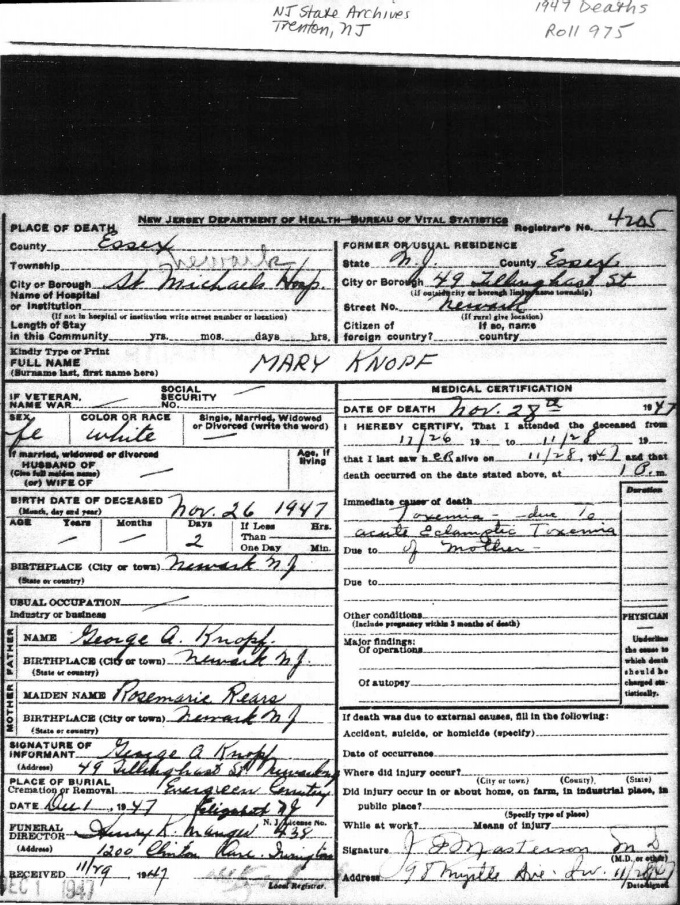 NJ State Archives
Trenton, NJ
1947 Deaths
Roll 975
NEW JERSEY DEPARTMENT OF HEALTH—BUREAU OF VITAL STATISTICS
Registrar's No. 4205
PLACE OF DEATH
County Essex
Township Newark
City or Borough St Michaels Hosp.
Name of Hospital
or Institution
(If not in hospital or institution write street number or location)
Length of Stay
in this Community yrs. mos. days hrs.
FORMER OR USUAL RESIDENCE
State N.J. County Essex
City or Borough 49 Tillinghast St
(If outside city or borough limits name township)
Street No. Newark
(If rural give location)
Citizen of If so, name
foreign country? country
Kindly Type or Print
FULL NAME MARY KNOPF
(Surname last, first name here)
IF VETERAN, SOCIAL
NAME WAR — SECURITY —
NO.
SEX COLOR OR RACE Single, Married, Widowed
or Divorced (write the word)
fe white —
If married, widowed or divorced Age, if
HUSBAND OF living
(Give full maiden name)
(or) WIFE OF
BIRTH DATE OF DECEASED Nov. 26 1947
(Month, day and year)
AGE Years Months Days If Less Hrs.
— — 2 Than
One Day Min.
BIRTHPLACE (City or town) Newark NJ
(State or country)
USUAL OCCUPATION —
Industry or business
FATHER
NAME George A. Knopf.
BIRTHPLACE (City or town) Newark NJ.
(State or country)
MOTHER
MAIDEN NAME Rosemarie Rears
BIRTHPLACE (City or town) Newark NJ
(State or country)
SIGNATURE OF
INFORMANT George A Knopf
(Address) 49 Tillinghast St Newark
PLACE OF BURIAL
Cremation or Removal Evergreen Cemetery
DATE Dec 1, 1947 Elizabeth NJ
FUNERAL N. J. License No.
DIRECTOR Henry K. 438
(Address) 1200 Clinton Ave. Irvington
RECEIVED 11/29 1947
Local Registrar.
DEC 1 1947
MEDICAL CERTIFICATION
DATE OF DEATH Nov. 28th 1947
I HEREBY CERTIFY, That I attended the deceased from
11/26 19 to 11/28 19
that I last saw her alive on 11/28, 1947 and that
death occurred on the date stated above, at 1 P. m.
Duration
Immediate cause of death
Toxemia - due to
acute Eclamptic Toxemia
Due to of Mother -
Due to
Other conditions
(Include pregnancy within 3 months of death)
Major findings:
Of operations
Of autopsy
PHYSICIAN
Underline
the cause to
which death
should be
charged sta-
tistically.
If death was due to external causes, fill in the following:
Accident, suicide, or homicide (specify)
Date of occurrence
Where did injury occur?
(City or town) (County) (State)
Did injury occur in or about home, on farm, in industrial place, in
public place?
(Specify type of place)
While at work? Means of injury
Signature J F Masterson M D
(M.D. or other)
Address 98 Myrtle Ave - Irv. 11/29/47
Date signed